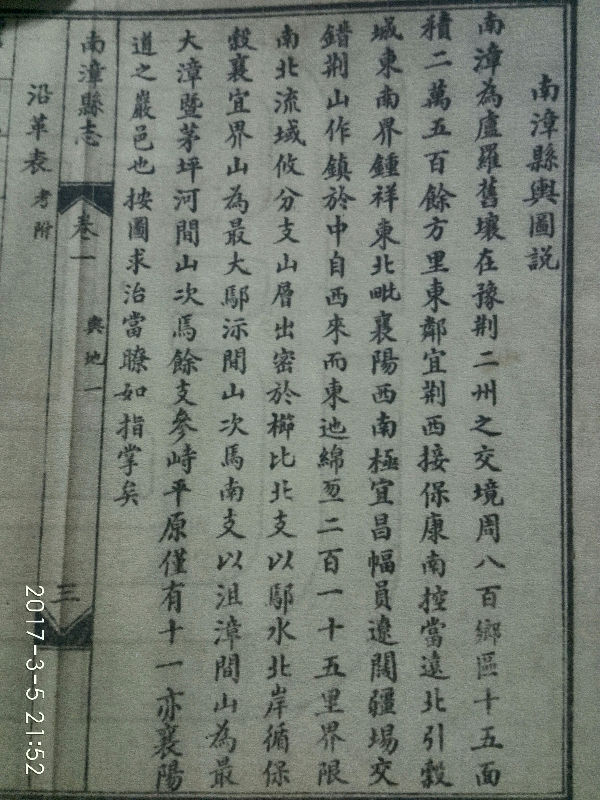 南漳縣輿圖説
南漳為盧羅舊壤在豫荆二州之交境周八百鄉區十五面
積二萬五百餘方里東鄰宜荆西接保康南控當遠北引穀
城東南界鍾祥東北毗襄陽西南極宜昌幅員遼闊疆場交
錯荆山作鎮於中自西來而東迤綿亙二百一十五里界限
南北流域攸分支山層出密於櫛比北支以鄢水北岸循保
穀襄宜界山為最大鄢沶間山次焉南支以沮漳間山為最
大漳暨茅坪河間山次焉餘支參峙平原僅有十一亦襄陽
道之巖邑也按圖求治當瞭如指掌矣
南漳縣志
卷一
輿地一
三
沿革表 考附
2017-3-5 21:52